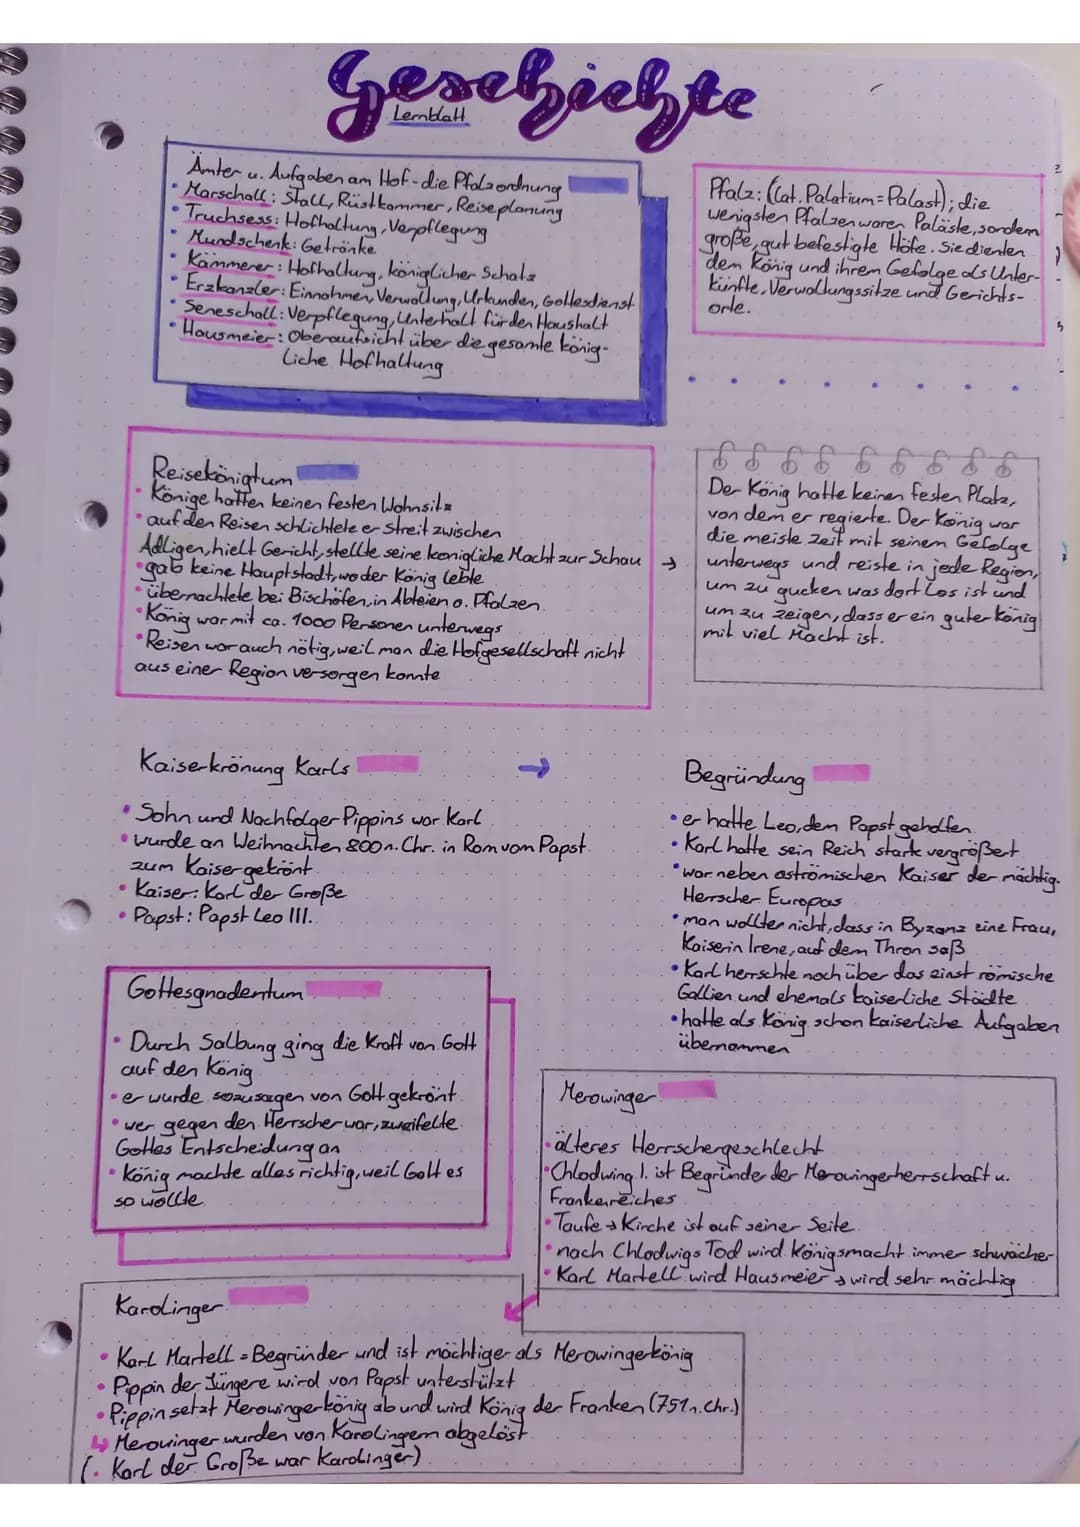 Geschichte
Lernblatt
Ämter u. Aufgaben am Hof - die Pfalzordnung
• Marschall: Stall, Rüstkammer, Reiseplanung
• Truchsess: Hofhaltung, Verpflegung
• Mundschenk: Getränke
• Kämmerer: Hofhaltung, königlicher Schatz
• Erzkanzler: Einnahmen, Verwaltung, Urkunden, Gottesdienst
• Seneschall: Verpflegung, Unterhalt für den Haushalt
• Hausmeier: Oberaufsicht über die gesamte könig-
liche Hofhaltung
Pfalz: (lat. Palatium = Palast); die
wenigsten Pfalzen waren Paläste, sondern
große, gut befestigte Höfe. Sie dienten
dem König und ihrem Gefolge als Unter-
künfte, Verwaltungssitze und Gerichts-
orte.
Reisekönigtum
• Könige hatten keinen festen Wohnsitz
• auf den Reisen schlichtete er Streit zwischen
Adligen, hielt Gericht, stellte seine königliche Macht zur Schau →
• gab keine Hauptstadt, wo der König lebte
• übernachtete bei Bischöfen, in Abteien o. Pfalzen
• König war mit ca. 1000 Personen unterwegs
• Reisen war auch nötig, weil man die Hofgesellschaft nicht
aus einer Region versorgen konnte
Der König hatte keinen festen Platz,
von dem er regierte. Der König war
die meiste Zeit mit seinem Gefolge
unterwegs und reiste in jede Region,
um zu gucken was dort los ist und
um zu zeigen, dass er ein guter König
mit viel Macht ist.
Kaiserkrönung Karls →
• Sohn und Nachfolger Pippins war Karl
• wurde an Weihnachten 800 n. Chr. in Rom vom Papst
zum Kaiser gekrönt
• Kaiser: Karl der Große
• Papst: Papst Leo III.
Begründung
• er hatte Leo, dem Papst geholfen
• Karl hatte sein Reich stark vergrößert
• war neben oströmischen Kaiser der mächtig.
Herrscher Europas
• man wollter nicht, dass in Byzanz eine Frau,
Kaiserin Irene, auf dem Thron saß
• Karl herrschte noch über das einst römische
Gallien und ehemals kaiserliche Städte
• hatte als König schon kaiserliche Aufgaben
übernommen
Gottesgnadentum
• Durch Salbung ging die Kraft von Gott
auf den König
• er wurde sozusagen von Gott gekrönt
• wer gegen den Herrscher war, zweifelte
Gottes Entscheidung an
• König machte alles richtig, weil Gott es
so wollte
Merowinger
• älteres Herrschergeschlecht
• Chlodwing I. ist Begründer der Merowingerherrschaft u.
Frankenreiches
• Taufe → Kirche ist auf seiner Seite
• nach Chlodwigs Tod wird Königsmacht immer schwächer
• Karl Martell wird Hausmeier → wird sehr mächtig
Karolinger
• Karl Martell = Begründer und ist mächtiger als Merowingerkönig
• Pippin der Jüngere wird von Papst unterstützt
• Pippin setzt Merowingerkönig ab und wird König der Franken (751 n. Chr.)
↳ Merowinger wurden von Karolingern abgelöst
(• Karl der Große war Karolinger)